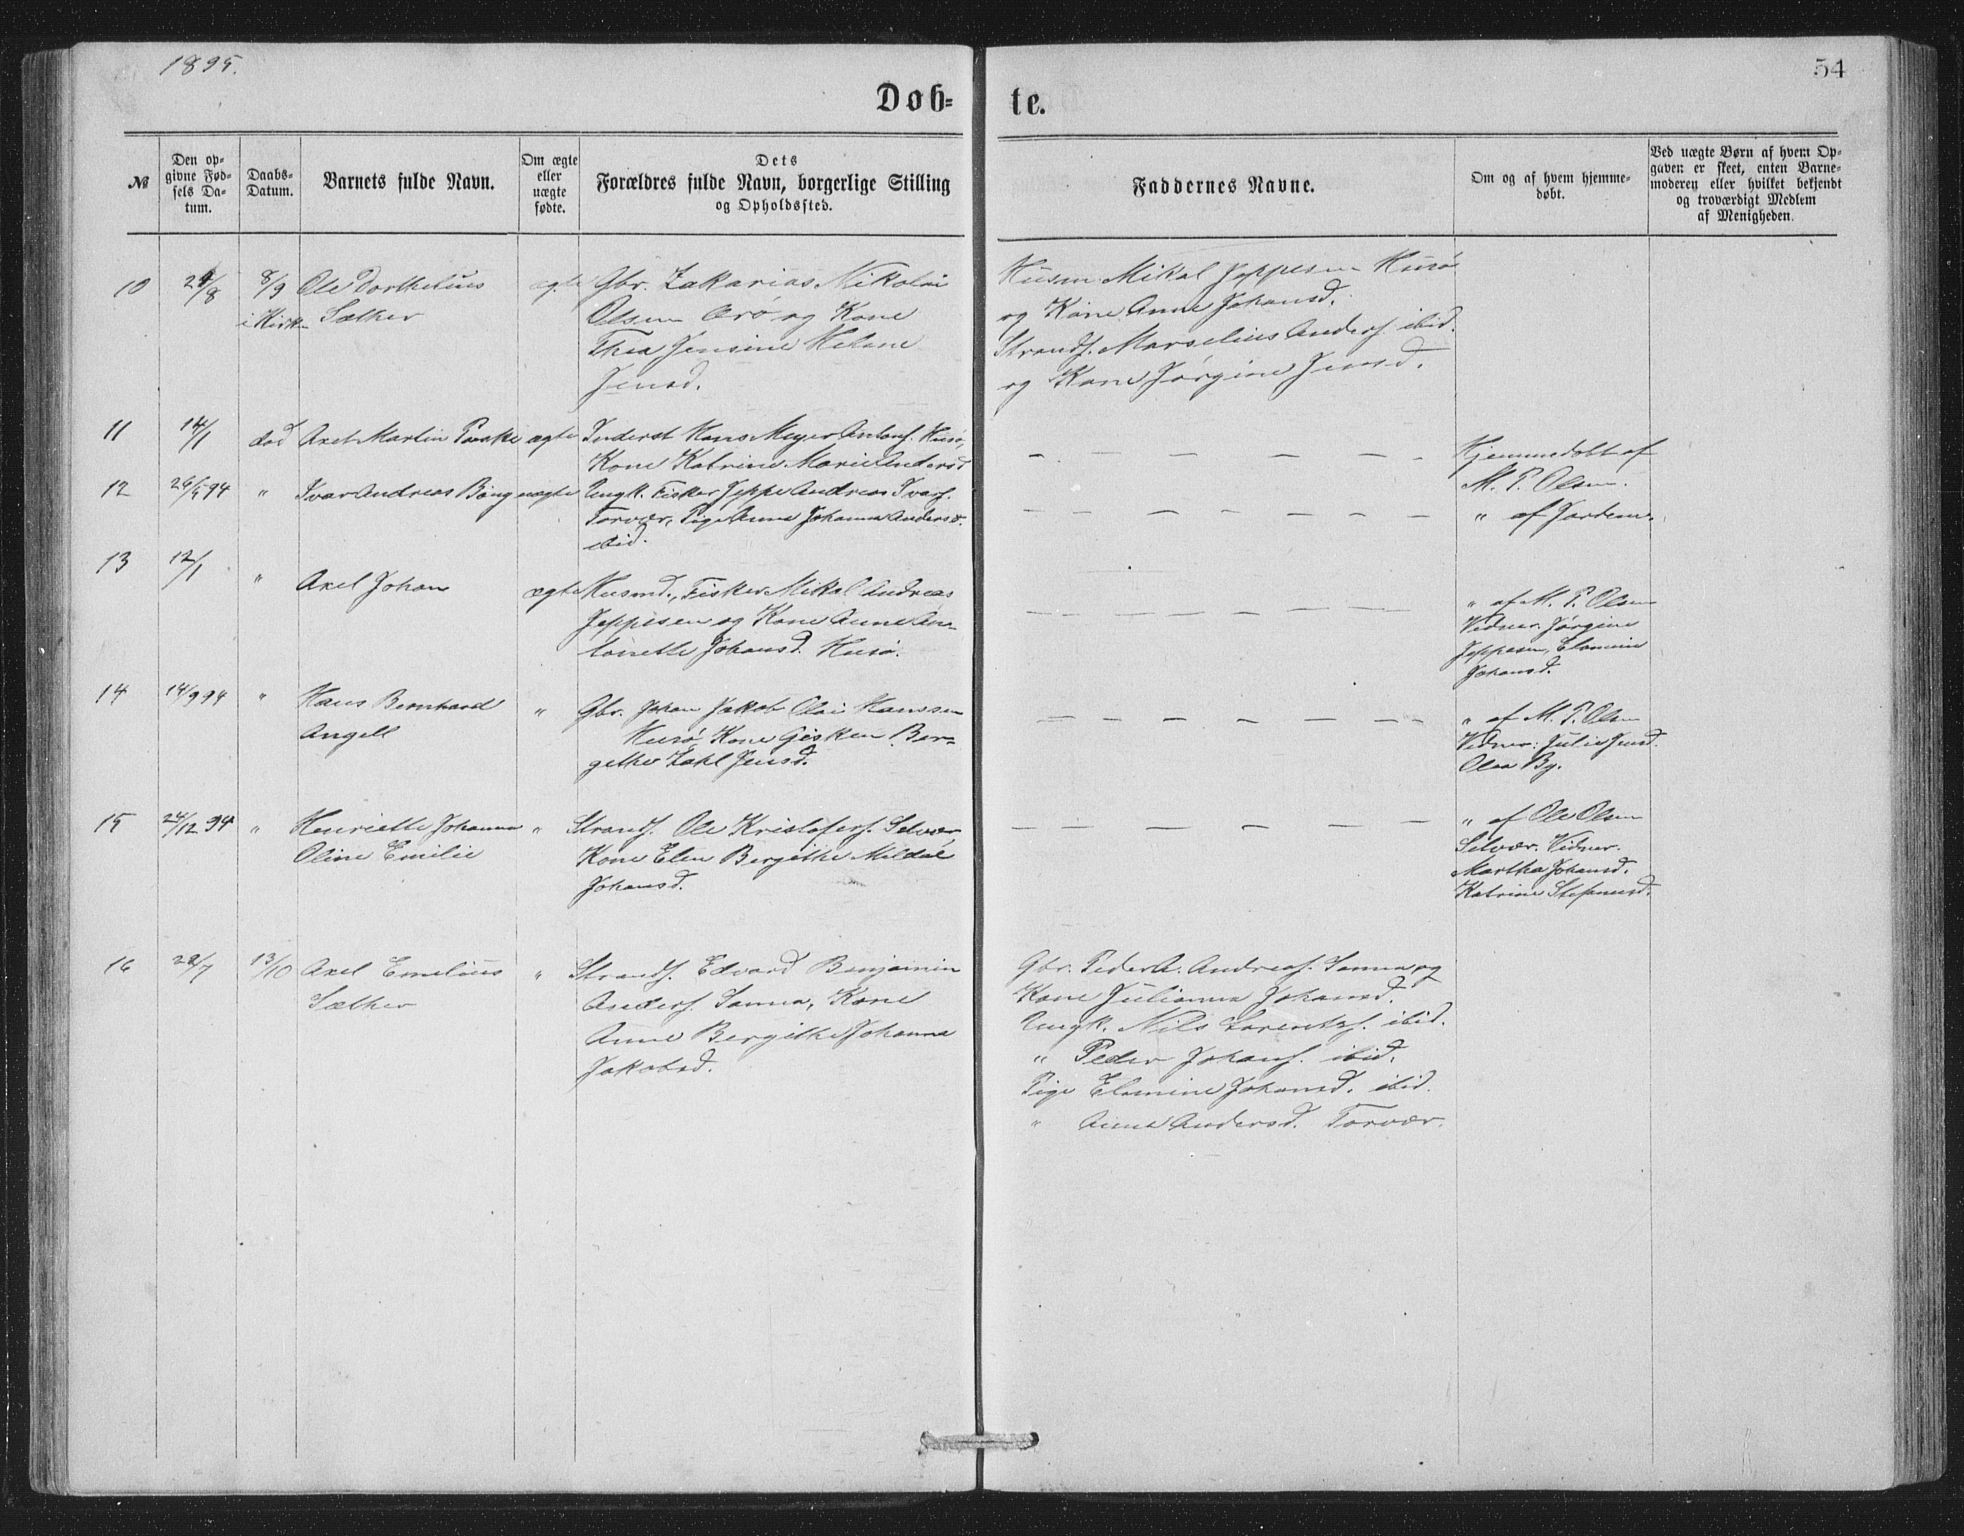 1895.
54
Døb=
te.
№
Den op=
givne Fød=
sels Da=
tum.
Daabs=
Datum.
Barnets fulde Navn.
Om ægte
eller
uægte
fødte.
Dets
Forældres fulde Navn, borgerlige Stilling
og Opholdssted.
Faddernes Navne.
Om og af hvem hjemme=
døbt.
Ved uægte Børn af hvem Op=
gaven er skeet, enten Barne=
moderen eller hvilket bekjendt
og troværdigt Medlem
af Menigheden.
10
8/9
i Kirk
Ole Dorthelius
Sæther
ægte
Gbr. Zakarias Nikolai
Olsen Orø og Kone
Thea Jensine Helene
Jensd.
Husm. Mikal Jeppesen Husø
og Kone Anne Johansd.
Strands. Marselius Anders. ibid.
og Kone Jørgine Jensd.
11
14/1
død
Axel Martin Paaske
ægte
Inderst Hans Meyer Antons. Husø,
Kone Katrine Marie Andersd
— — — — — — —
Hjemmedøbt af
M. P. Olsen.
12
94
"
Ivar Andreas Bøng
uægte
Ungk. Fisker Jeppe Andreas Ivars.
Torvær, Pige Anna Johanna Andersd.
ibid.
" af Jordem.
13
12/1
"
Axel Johan
ægte
Husmd., Fisker Mikal Andreas
Jeppesen og Kone Anne An=
tonette Johansd. Husø.
" af M. P. Olsen
Vidner. Jørgine
Jeppesen, Elamine
Johansd.
14
14/9 94
"
Hans Bernhard
Angell
"
Gbr. Johan Jakob Olai Hanssen
Husø, Kone Gisken Ber=
gethe Zahl Jensd.
" af M. P. Olsen
Vidner: Julie Jensd.
Olaa By.
15
24/12 94
"
Henriette Johanna
Oline Emilie
"
Strands. Ole Kristofers. Selvær
Kone Elen Bergithe Meldal
Johansd.
" af Ole Olsen
Selvær. Vidner.
Martha Johansd.
Katrine Stefanusd.
16
28/7
13/10
Axel Emelius
Sæther
"
Strands. Edvard Benjamin
Anders. Sanna, Kone
Anne Bergithe Johanna
Jakobsd.
Gbr. Peder A. Andreas. Sanna og
Kone Julianna Johansd.
Ungk. Nils Lorentzs. ibid.
" Peder Johans. ibid.
Pige Elamine Johansd. ibid.
" Anna Andersd. Torvær.